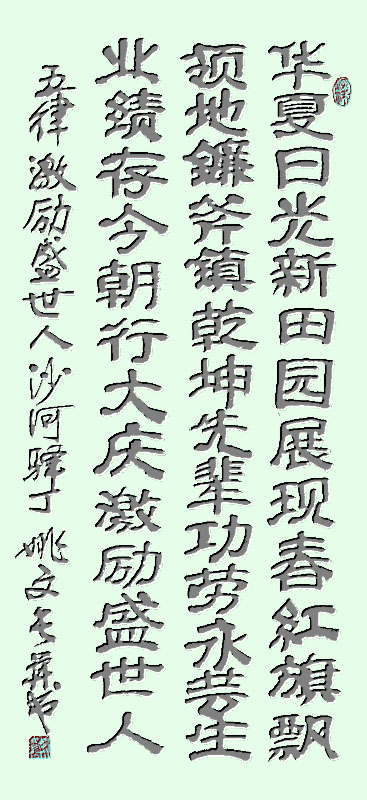 华夏日光新田园展现春红旗飘
领地镰斧镇乾坤先辈功劳永芸生
业绩存今朝行大庆激励盛世人
五律激励盛世人沙河驿丁姚文